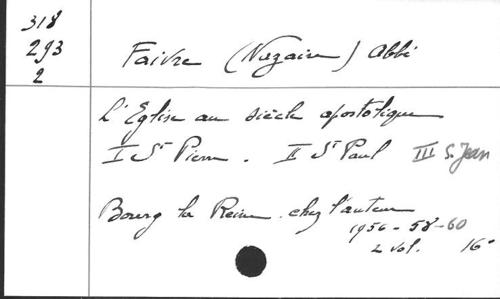 318
293
2
Faivre (Nazaire) Abbé
L'Eglise au siècle apostolique
I St Pierre. II St Paul III S. Jean
Bourg la Reine. chez l'auteur
1956-58-60
2 vol. 16°